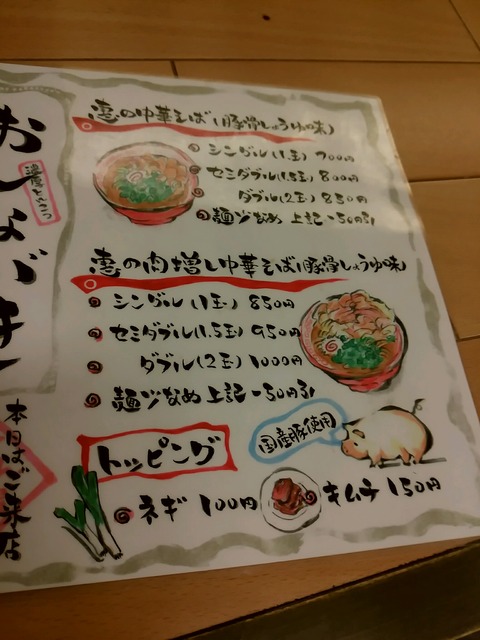 恵の中華そば(豚骨しょうゆ味)
シングル(1玉) 700円
セミダブル(1.5玉) 800円
ダブル(2玉) 850円
麺少なめ 上記-50円引
恵の肉増し中華そば(豚骨しょうゆ味)
シングル(1玉) 850円
セミダブル(1.5玉) 950円
ダブル(2玉) 1000円
麺少なめ 上記-50円引
国産豚使用
トッピング
ネギ 100円
キムチ 150円
濃厚とんこつ
本日はご来店